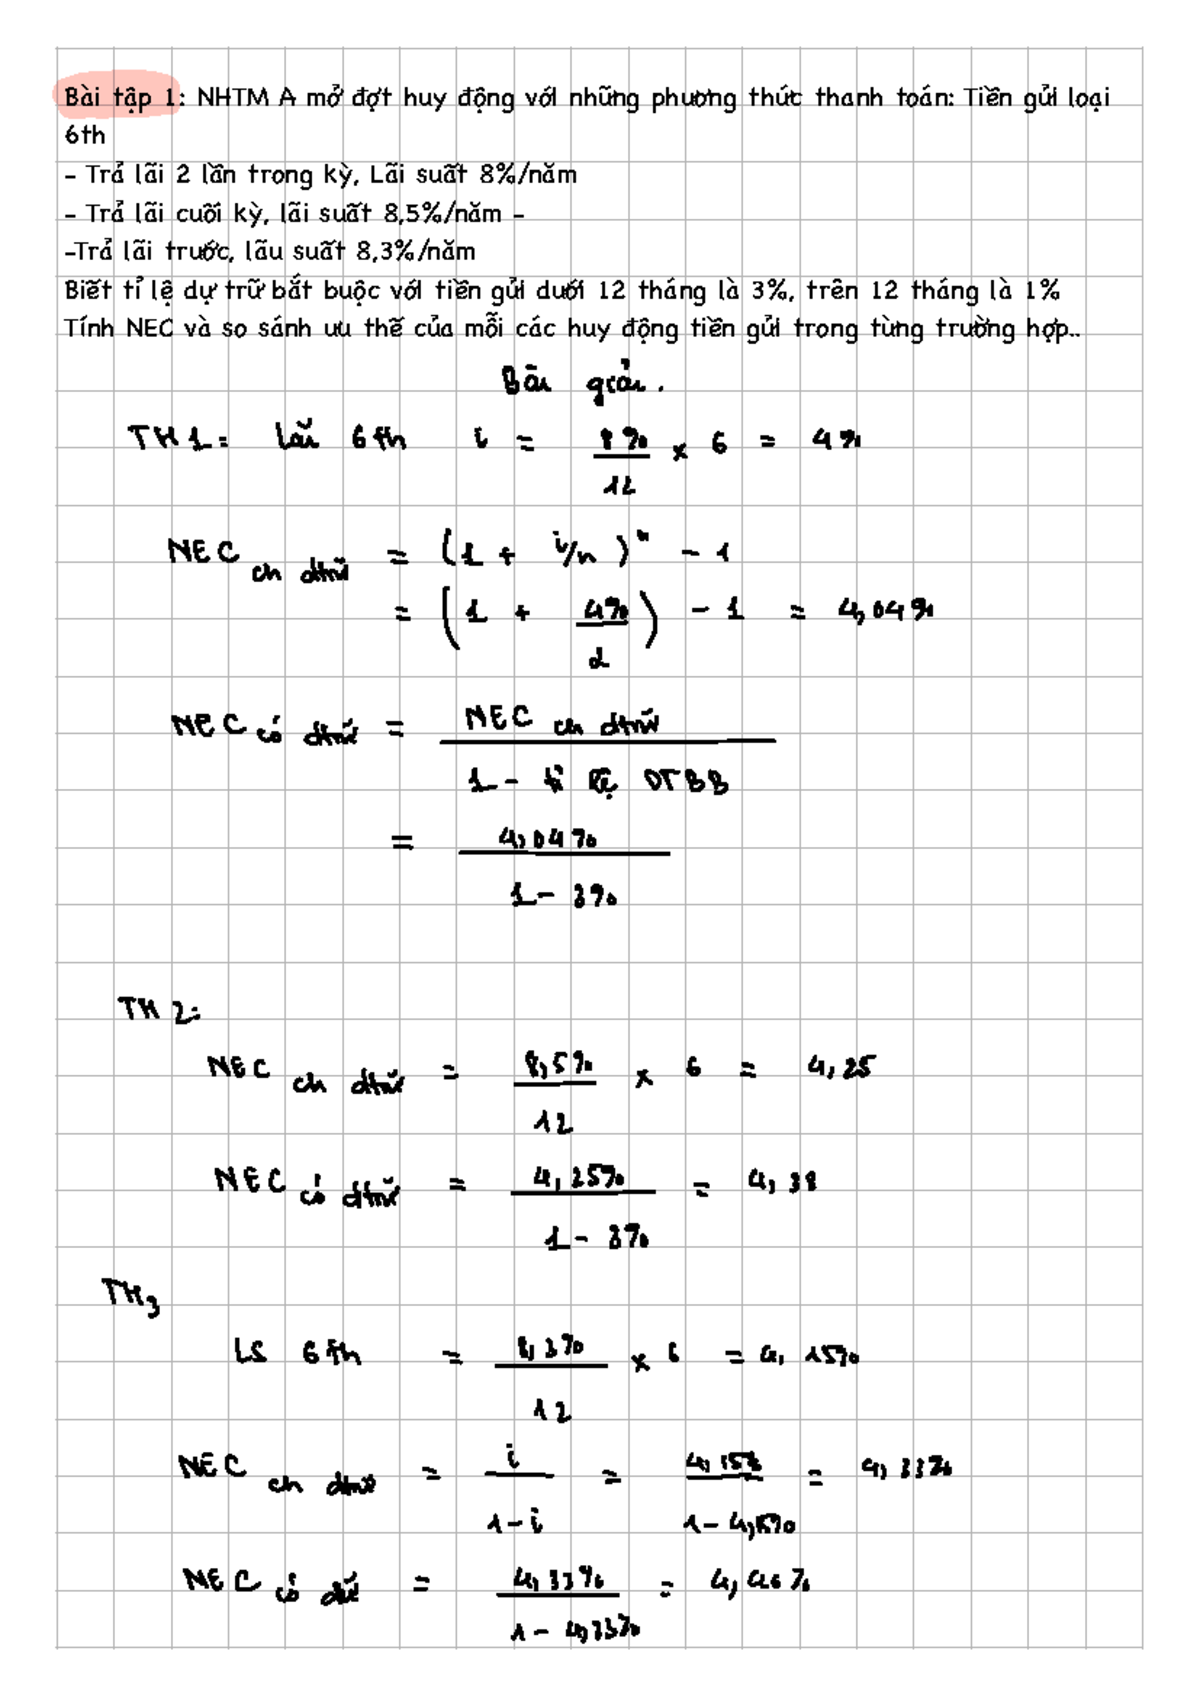 Bài tập 1: NHTM A mở đợt huy động với những phương thức thanh toán: Tiền gửi loại
6th
- Trả lãi 2 lần trong kỳ, Lãi suất 8%/năm
- Trả lãi cuối kỳ, lãi suất 8,5%/năm -
-Trả lãi trước, lãu suất 8,3%/năm
Biết tỉ lệ dự trữ bắt buộc với tiền gửi dưới 12 tháng là 3%, trên 12 tháng là 1%
Tính NEC và so sánh ưu thế của mỗi các huy động tiền gửi trong từng trường hợp..
Bài giải.
TH1: lãi 6th i = 8%/12 x 6 = 4%
NEC ch dtrữ = (1 + i/n)ⁿ - 1
= (1 + 4%/2) - 1 = 4,04%
NEC có dtrữ = NEC ch dtrữ / 1 - tỉ lệ DTBB
= 4,04% / 1 - 3%
TH 2:
NEC ch dtrữ = 8,5%/12 x 6 = 4,25
NEC có dtrữ = 4,25% / 1 - 3% = 4,38
TH3
LS 6th = 8,3%/12 x 6 = 4,15%
NEC ch dtrữ = i / 1-i = 4,15% / 1-4,15% = 4,33%
NEC có dtrữ = 4,33% / 1 - 4,33% = 4,46%